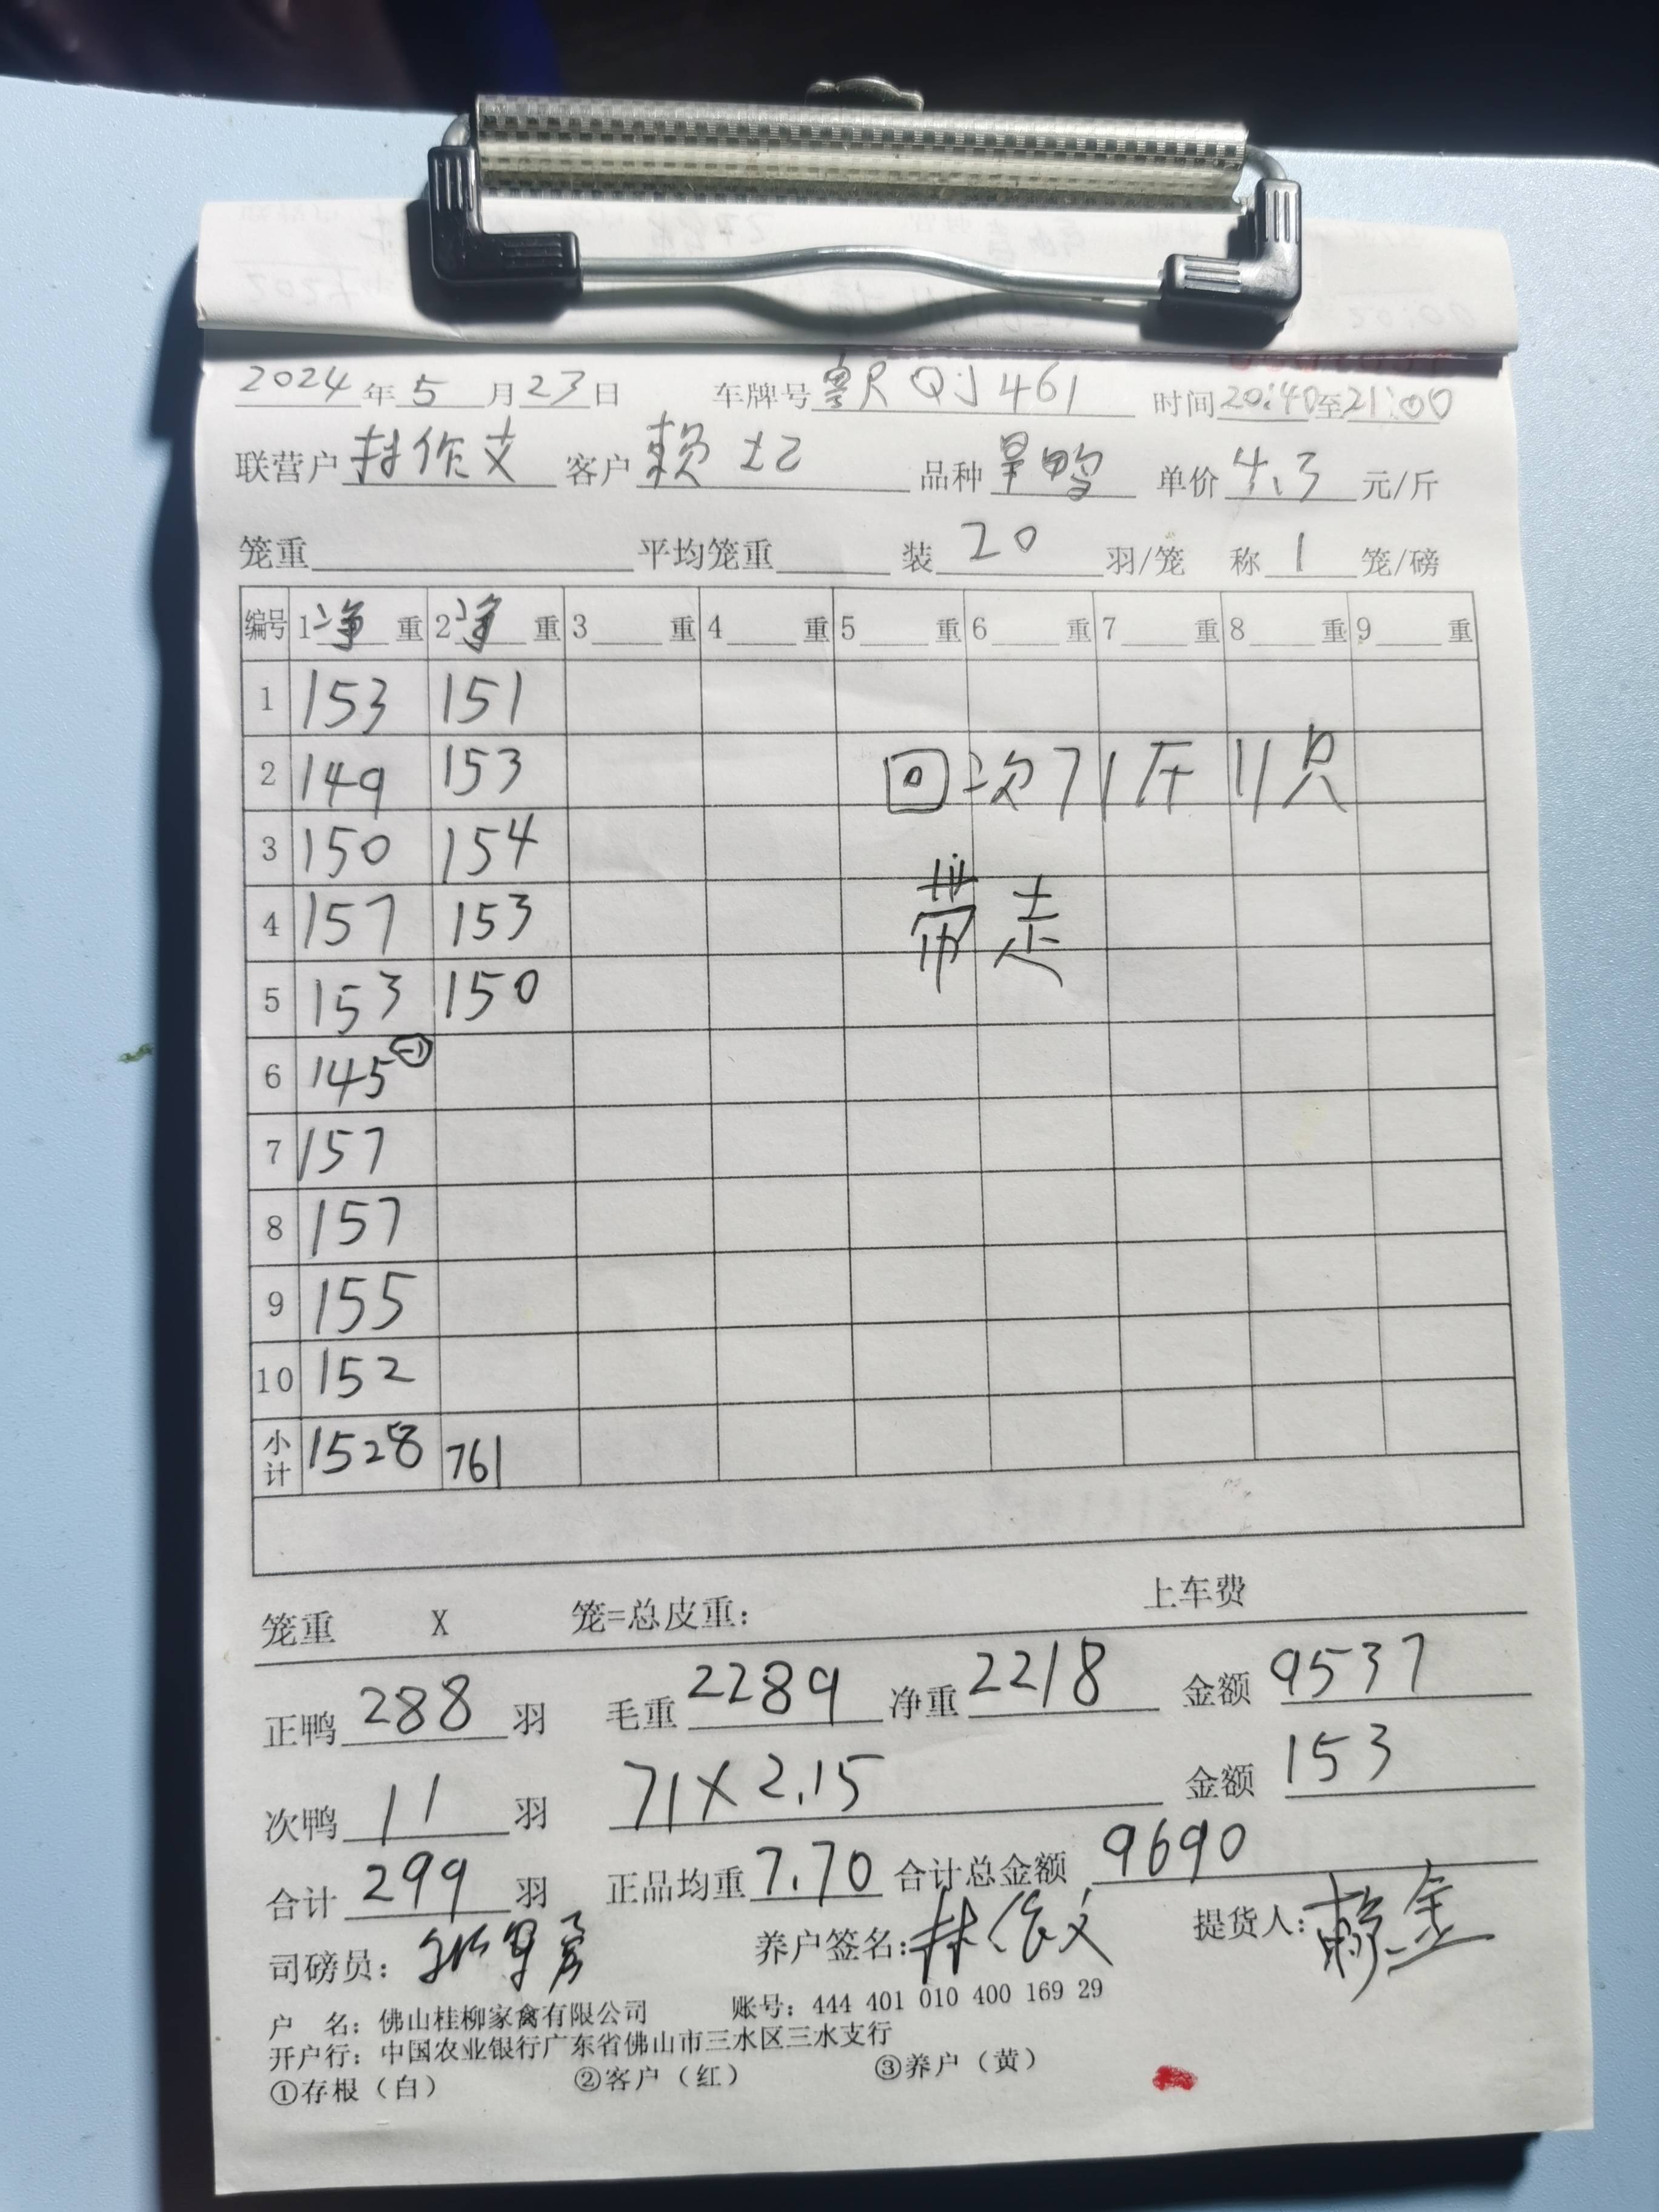 2024年5月23日 车牌号 粤R QJ461 时间20:40至21:00
联营户 林作文 客户 赖 品种 旱鸭 单价 4.3 元/斤
笼重 平均笼重 装 20 羽/笼 称 1 笼/磅
编号 1净重 2净重 3 重 4 重 5 重 6 重 7 重 8 重 9 重
1 153 151
2 149 153 回次71斤11只
3 150 154
4 157 153 带走
5 153 150
6 145 ⊖1
7 157
8 157
9 155
10 152
小计 1528 761
笼重 X 笼=总皮重: 上车费
正鸭 288 羽 毛重 2289 净重 2218 金额 9537
次鸭 11 羽 71×2.15 金额 153
合计 299 羽 正品均重 7.70 合计总金额 9690
司磅员: 养户签名:林作文 提货人:赖金
户 名:佛山桂柳家禽有限公司 账号:444 401 010 400 169 29
开户行:中国农业银行广东省佛山市三水区三水支行
①存根(白) ②客户(红) ③养户(黄)